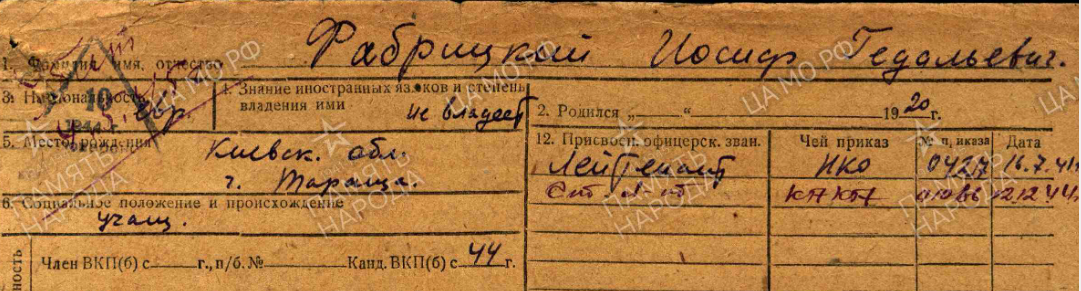 Фабрицкий Иосиф Гедальевич.
1. Фамилия, имя, отчество
3. Национальность евр
4. Знание иностранных языков и степень владения ими не владеет
2. Родился „ “ 1920 г.
5. Место рождения Киевск. обл.
г. Тараща.
6. Социальное положение и происхождение
учащ.
Член ВКП(б) с г., п/б. № Канд. ВКП(б) с 44 г.
12. Присвоен. офицерск. зван. Чей приказ № приказа Дата
Лейтенант НКО 0427 16.7.41
Ст. л-т
ПАМЯТЬ НАРОДА
ЦАМО.РФ